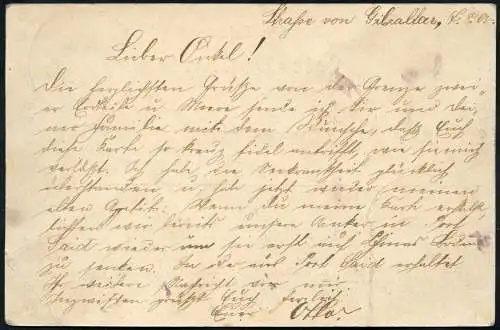 Straße von Gibraltar,
Lieber Onkel!
Die herzlichsten Grüße von der Grenze zwei-
er Erdteile u. Meere sende ich Dir und Dei-
ner Familie mit dem Wunsche, daß Euch
diese Karte so kreuz fidel antrifft, wie sie mich
verläßt. Ich habe die Seekrankheit glücklich
überstanden u. habe jetzt wieder meinen
alten Appetit. Wenn Du meine Karte erhältst,
lichten wir bereits unsere Anker in Port
Said wieder um sie erst auf Chinas Boden
zu senken. In der aus Port Said erhaltet
Ihr weitere Nachricht von mir.
Inzwischen grüßt Euch herzlich
Euer Otto.